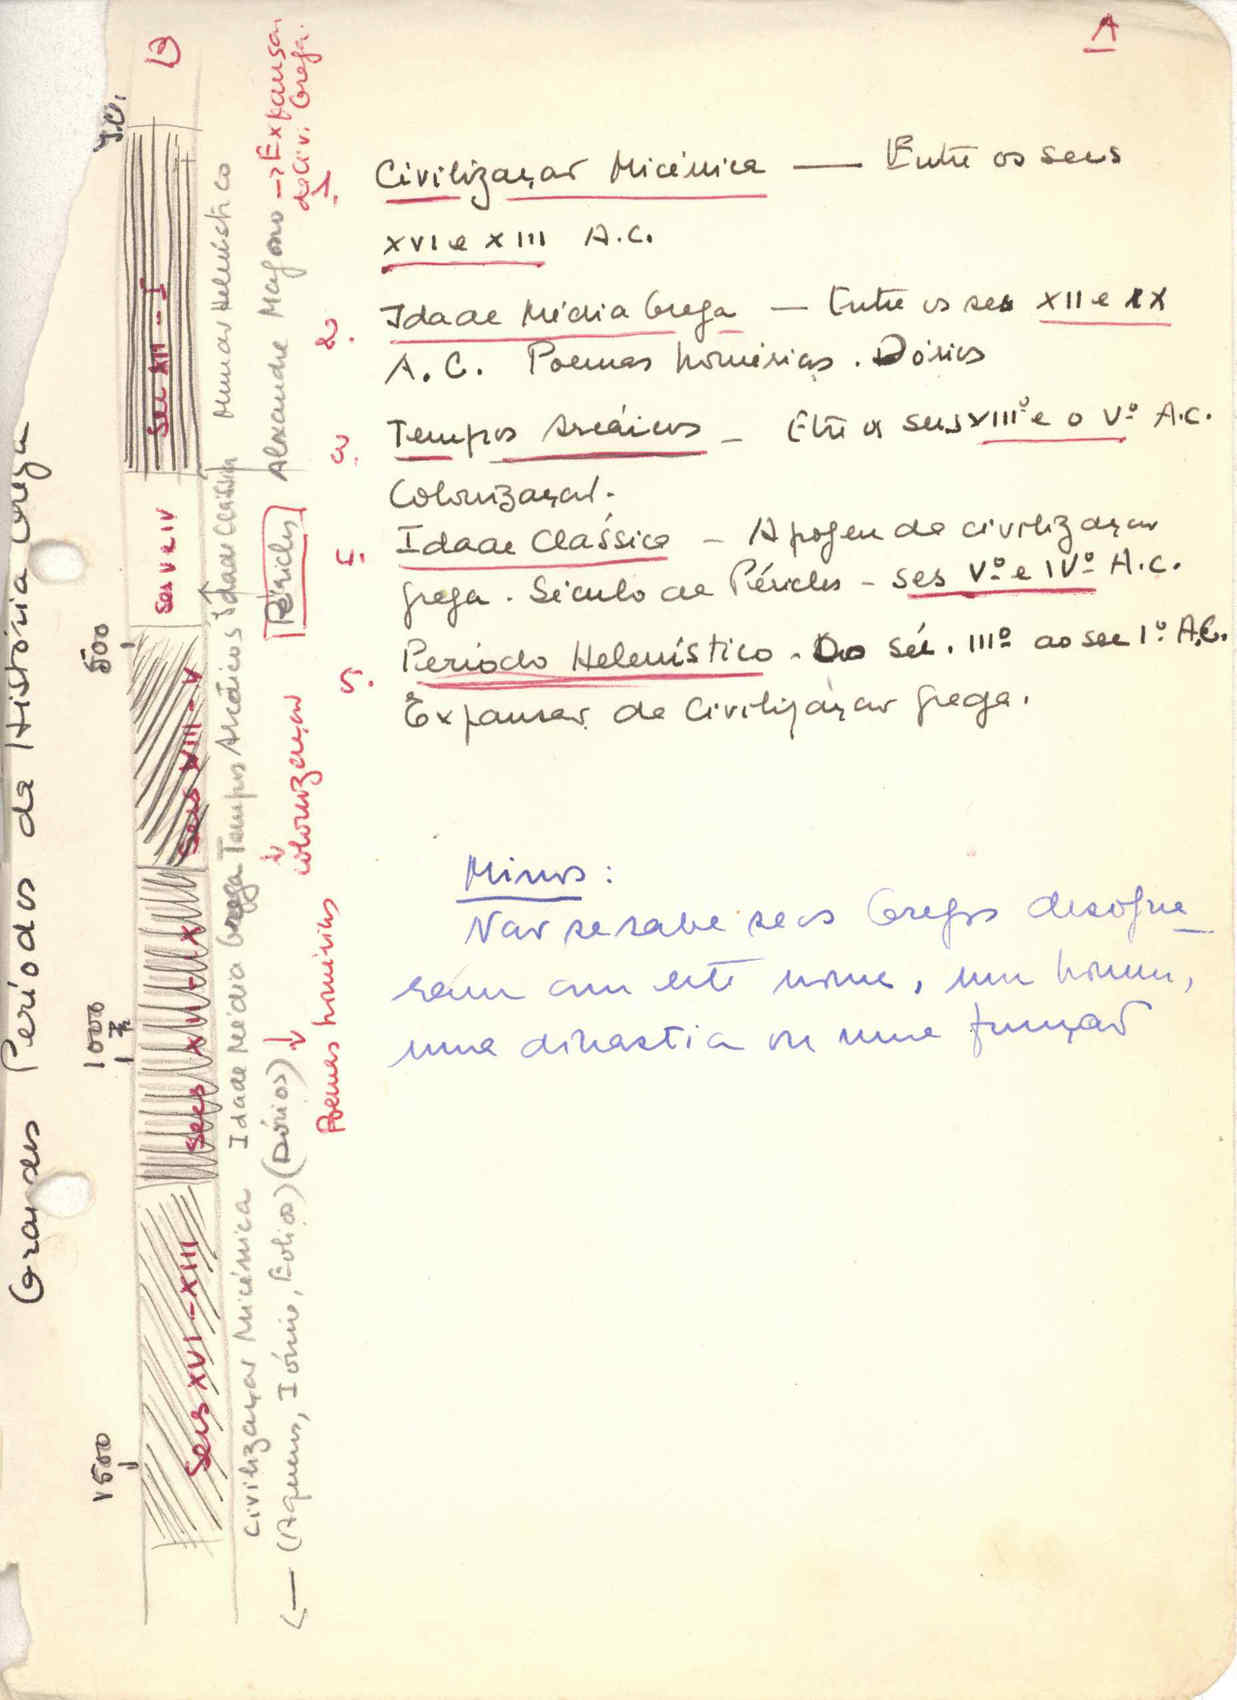 A
1. Civilização Micénica — Entre os secs
XVI e XIII A.C.
2. Idade Média Grega — Entre os sec XII e IX
A.C. Poemas homéricos. Dórios
3. Tempos Arcáicos — Etre os secs VIIIº e o Vº A.C.
Colonização.
4. Idade Clássica — Apogeu da civilização
grega. Século de Péricles - ses Vº e IVº A.C.
5. Período Helenístico - Do séc. IIIº ao sec Iº A.C.
Expansão da Civilização grega.
Minos:
Não se sabe se os Gregos desogna_
ram com este nome, um homem,
uma dinastia ou uma função
B
Grandes Períodos da História Grega
1500 1000 500 J.C.
Secs XVI-XIII
Secs XII-IX
Secs VIII-V
Secs V e IV
Sec III-I
Civilização Micénica Idade Média Grega Tempos Arcáicos Idade Clássica Mundo Helenístico
← (Aqueus, Iónios, Eólios) (Dórios) Péricles Alexandre Magno → Expansão
da Civ. Grega.
↓ Poemas homéricos
↓ colonização